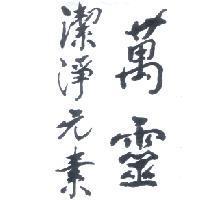 萬靈
潔淨元素